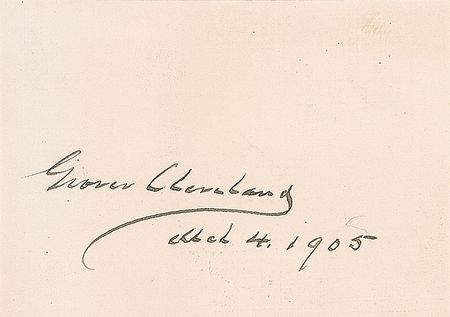 Grover Cleveland
Mch 4. 1905